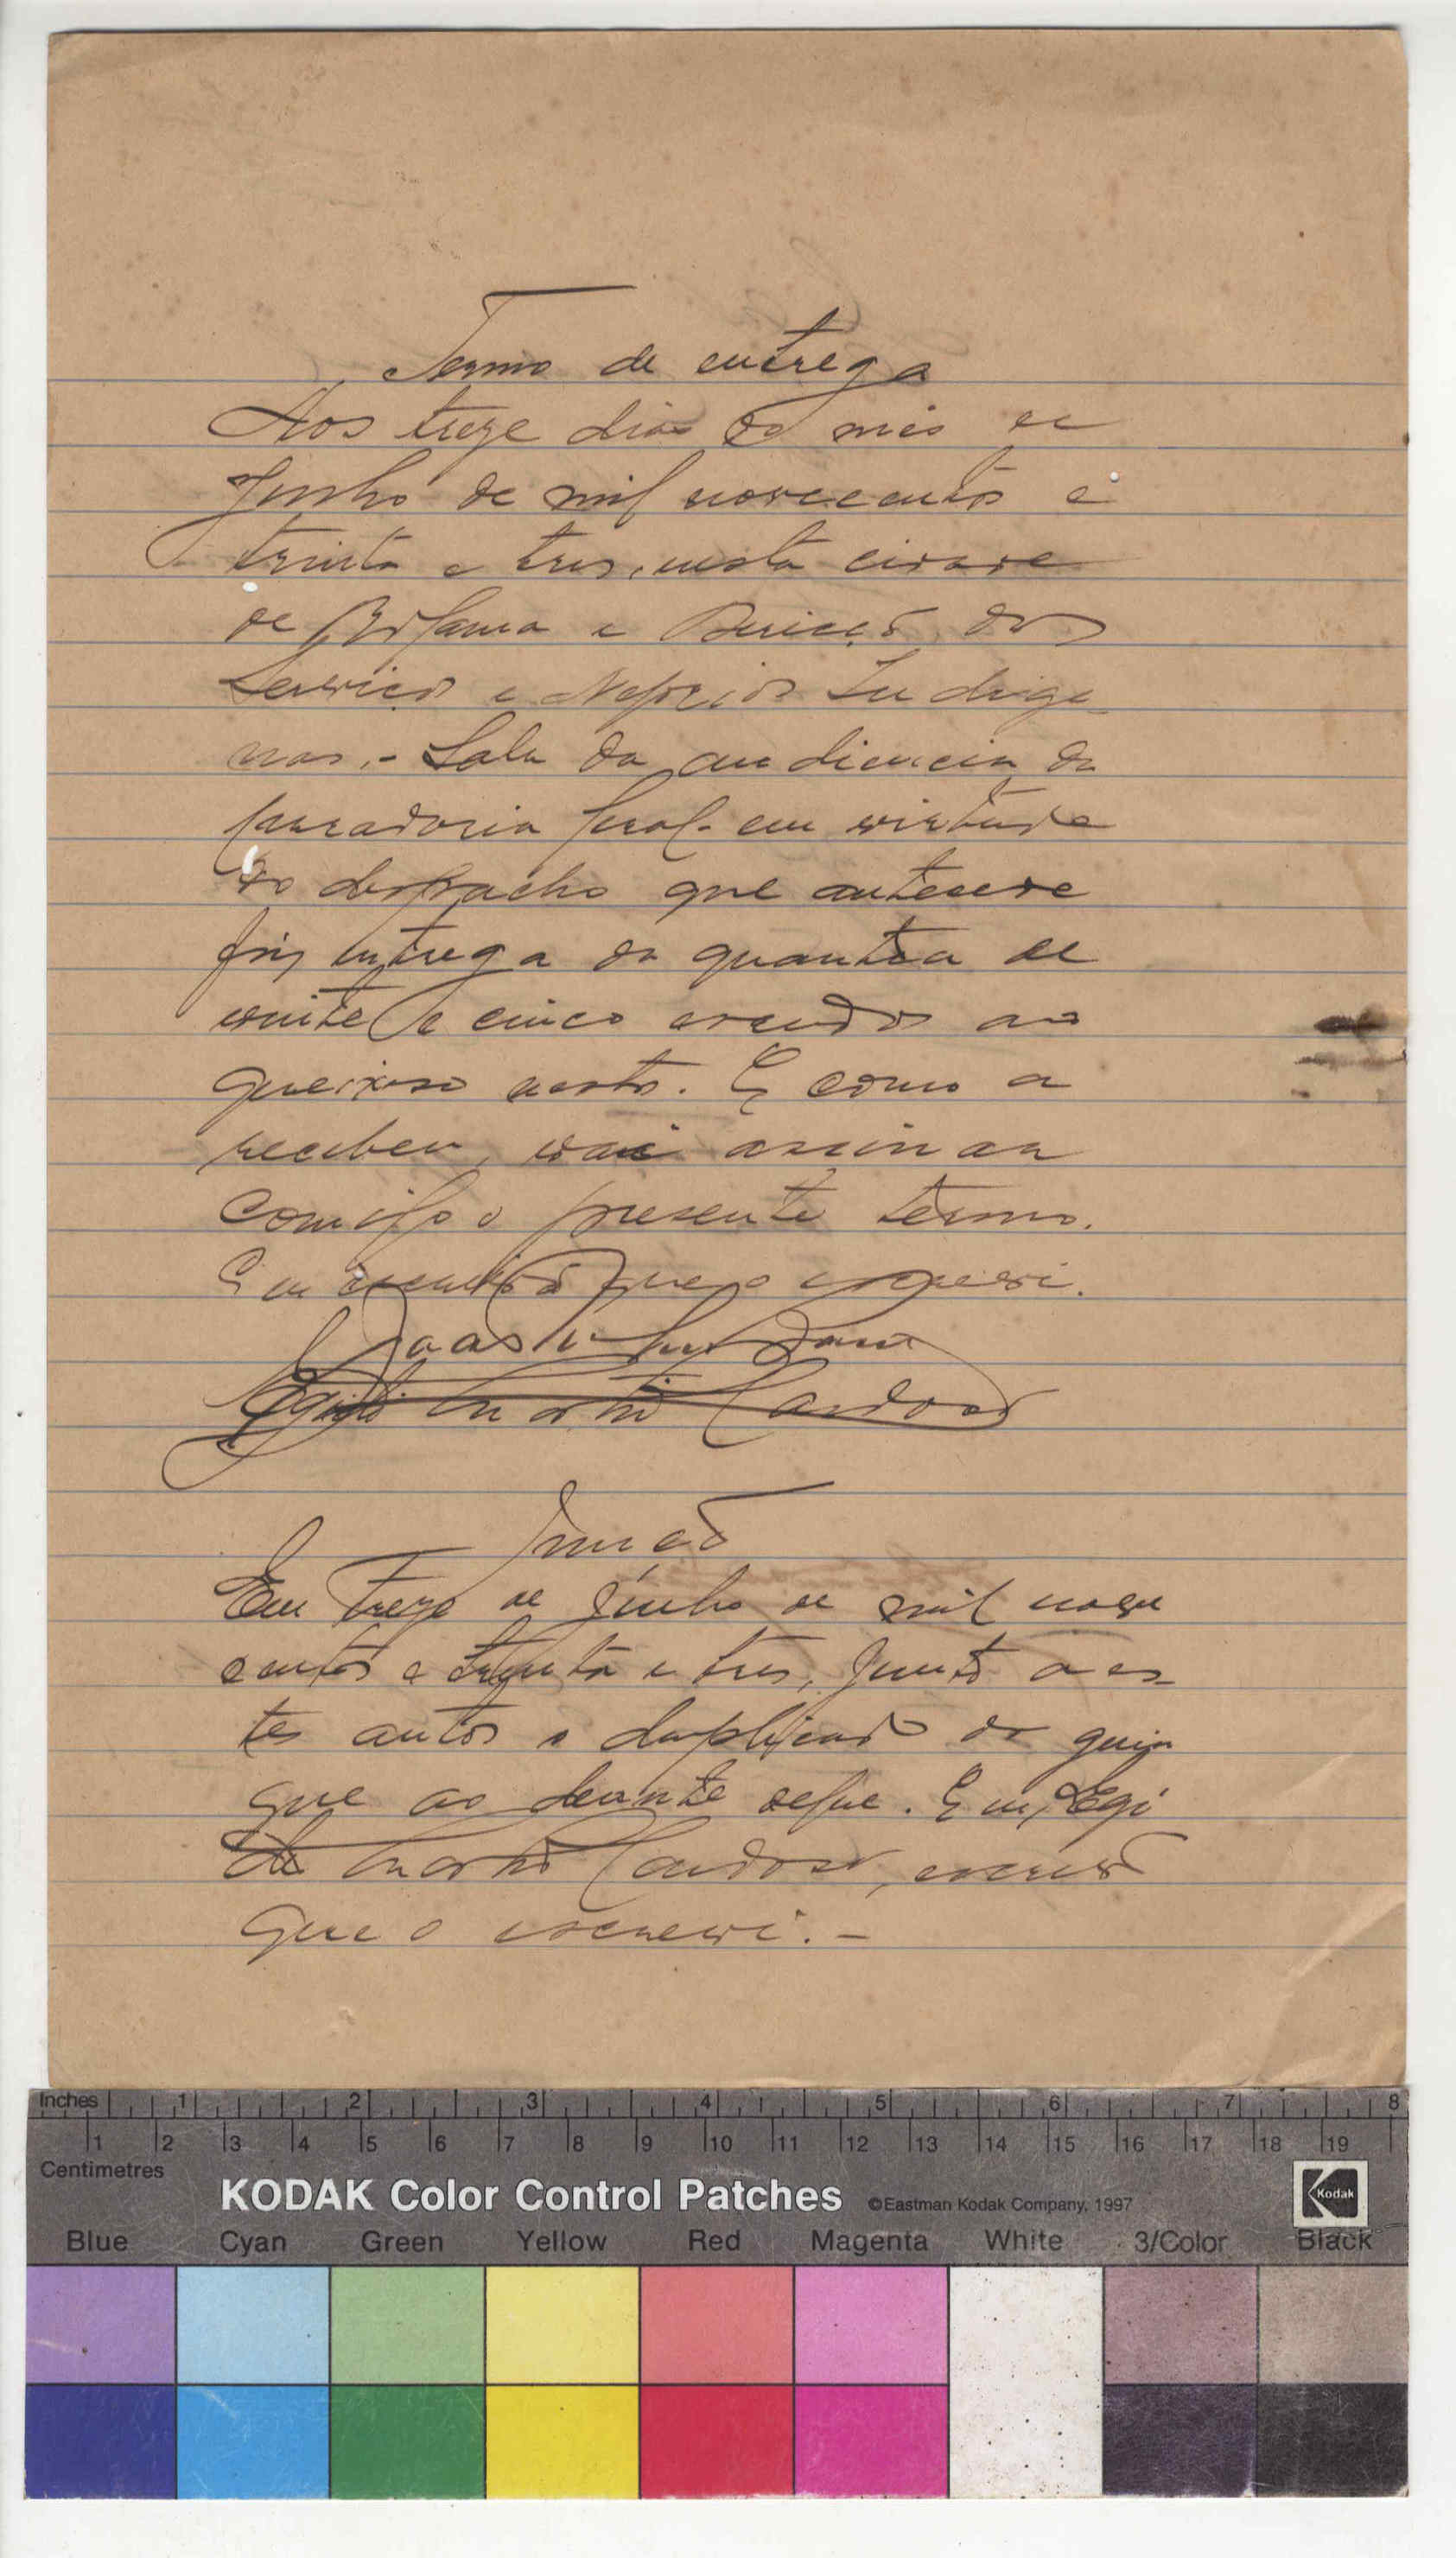 Termo de entrega
Aos treze dias do mês de
Junho de mil novecentos e
trinta e tres, nesta cidade
de Bolama e Direcção dos
Serviços e Negocios Indige-
nas, - Sala da audiencia da
Curadoria Geral - em virtude
do despacho que antecede
fiz entrega da quantia de
vinte e cinco escudos ao
queixoso nesto. E como a
recebeu, vai assinar
comigo o presente termo.
Eu escrivão que o escrevi.
Egidio Cardoso
Juncção
Em treze de Junho de mil nove
centos e trinta e tres, junto a es-
tes autos o duplicado da guia
que ao deante segue. Eu, Egi
dio Cardoso, escrivão
que o escrevi. -
Inches 1 2 3 4 5 6 7 8
1 2 3 4 5 6 7 8 9 10 11 12 13 14 15 16 17 18 19
Centimetres
KODAK Color Control Patches ©Eastman Kodak Company, 1997 Kodak
Blue Cyan Green Yellow Red Magenta White 3/Color Black